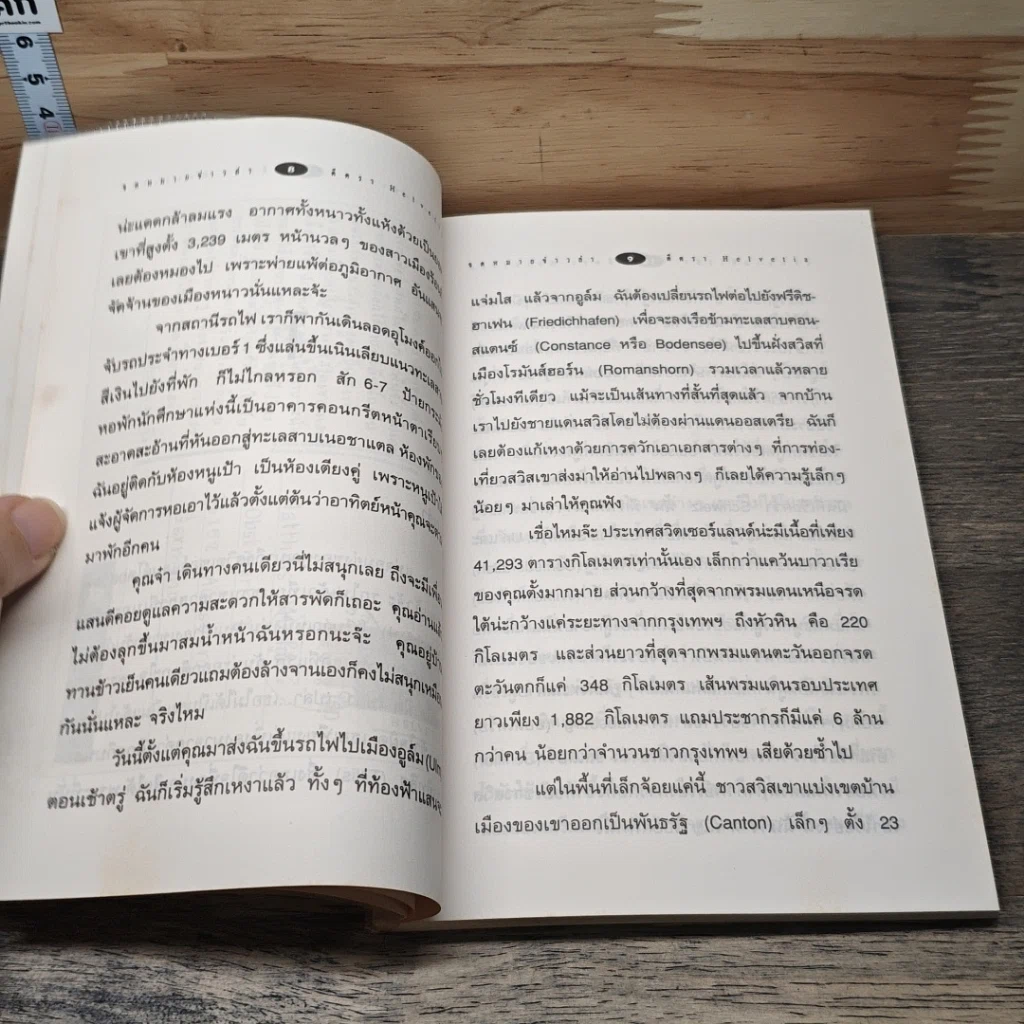 6
5
4
จดหมายข้าวลำ 8 มีตรา Helvetis
น่ะแดดกล้าลมแรง อากาศทั้งหนาวทั้งแห้งด้วยเป็น
เขาที่สูงตั้ง 3,239 เมตร หน้านวลๆ ของสาวเมืองร้อน
เลยต้องหมองไป เพราะพ่ายแพ้ต่อภูมิอากาศ อัน
จัดจ้านของเมืองหนาวนั่นแหละจ้ะ
จากสถานีรถไฟ เราก็พากันเดินลอดอุโมงค์ออก
จับรถประจำทางเบอร์ 1 ซึ่งแล่นขึ้นเนินเลียบแนวทะเลสาบ
สีเงินไปยังที่พัก ก็ไม่ไกลหรอก สัก 6-7 ป้ายกระมัง
หอพักนักศึกษาแห่งนี้เป็นอาคารคอนกรีตหน้าตาเรียบ
สะอาดสะอ้านที่หันออกสู่ทะเลสาบเนอชาแตล ห้องพักของ
ฉันอยู่ติดกับห้องหนูเป้า เป็นห้องเตียงคู่ เพราะหนูเป้า
แจ้งผู้จัดการหอเอาไว้แล้วตั้งแต่ต้นว่าอาทิตย์หน้าคุณจะ
มาพักอีกคน
คุณจ๋า เดินทางคนเดียวนี่ไม่สนุกเลย ถึงจะมีเพื่อน
แสนดีคอยดูแลความสะดวกให้สารพัดก็เถอะ คุณอ่านแล้ว
ไม่ต้องลุกขึ้นมาสมน้ำหน้าฉันหรอกนะจ๊ะ คุณอยู่บ้าน
ทานข้าวเย็นคนเดียวแถมต้องล้างจานเองก็คงไม่สนุกเหมือน
กันนั่นแหละ จริงไหม
วันนี้ตั้งแต่คุณมาส่งฉันขึ้นรถไฟไปเมืองอูล์ม (Ulm
ตอนเช้าตรู่ ฉันก็เริ่มรู้สึกเหงาแล้ว ทั้งๆ ที่ท้องฟ้าแสน
จดหมายข้าวลำ 9 มีตรา Helvetis
แจ่มใส แล้วจากอูล์ม ฉันต้องเปลี่ยนรถไฟต่อไปยังฟรีดิช-
ฮาเฟน (Friedichhafen) เพื่อจะลงเรือข้ามทะเลสาบคอน-
สแตนซ์ (Constance หรือ Bodensee) ไปขึ้นฝั่งสวิสที่
เมืองโรมันส์ฮอร์น (Romanshorn) รวมเวลาแล้วหลาย
ชั่วโมงทีเดียว แม้จะเป็นเส้นทางที่สั้นที่สุดแล้ว จากบ้าน
เราไปยังชายแดนสวิสโดยไม่ต้องผ่านแดนออสเตรีย ฉันก็
เลยต้องแก้เหงาด้วยการควักเอาเอกสารต่างๆ ที่การท่อง-
เที่ยวสวิสเขาส่งมาให้อ่านไปพลางๆ ก็เลยได้ความรู้เล็กๆ
น้อยๆ มาเล่าให้คุณฟัง
เชื่อไหมจ๊ะ ประเทศสวิตเซอร์แลนด์น่ะมีเนื้อที่เพียง
41,293 ตารางกิโลเมตรเท่านั้นเอง เล็กกว่าแคว้นบาวาเรีย
ของคุณตั้งมากมาย ส่วนกว้างที่สุดจากพรมแดนเหนือจรด
ใต้น่ะกว้างแค่ระยะทางจากกรุงเทพฯ ถึงหัวหิน คือ 220
กิโลเมตร และส่วนยาวที่สุดจากพรมแดนตะวันออกจรด
ตะวันตกก็แค่ 348 กิโลเมตร เส้นพรมแดนรอบประเทศ
ยาวเพียง 1,882 กิโลเมตร แถมประชากรก็มีแค่ 6 ล้าน
กว่าคน น้อยกว่าจำนวนชาวกรุงเทพฯ เสียด้วยซ้ำไป
แต่ในพื้นที่เล็กจ้อยแค่นี้ ชาวสวิสเขาแบ่งเขตบ้าน
เมืองของเขาออกเป็นพันธรัฐ (Canton) เล็กๆ ตั้ง 23